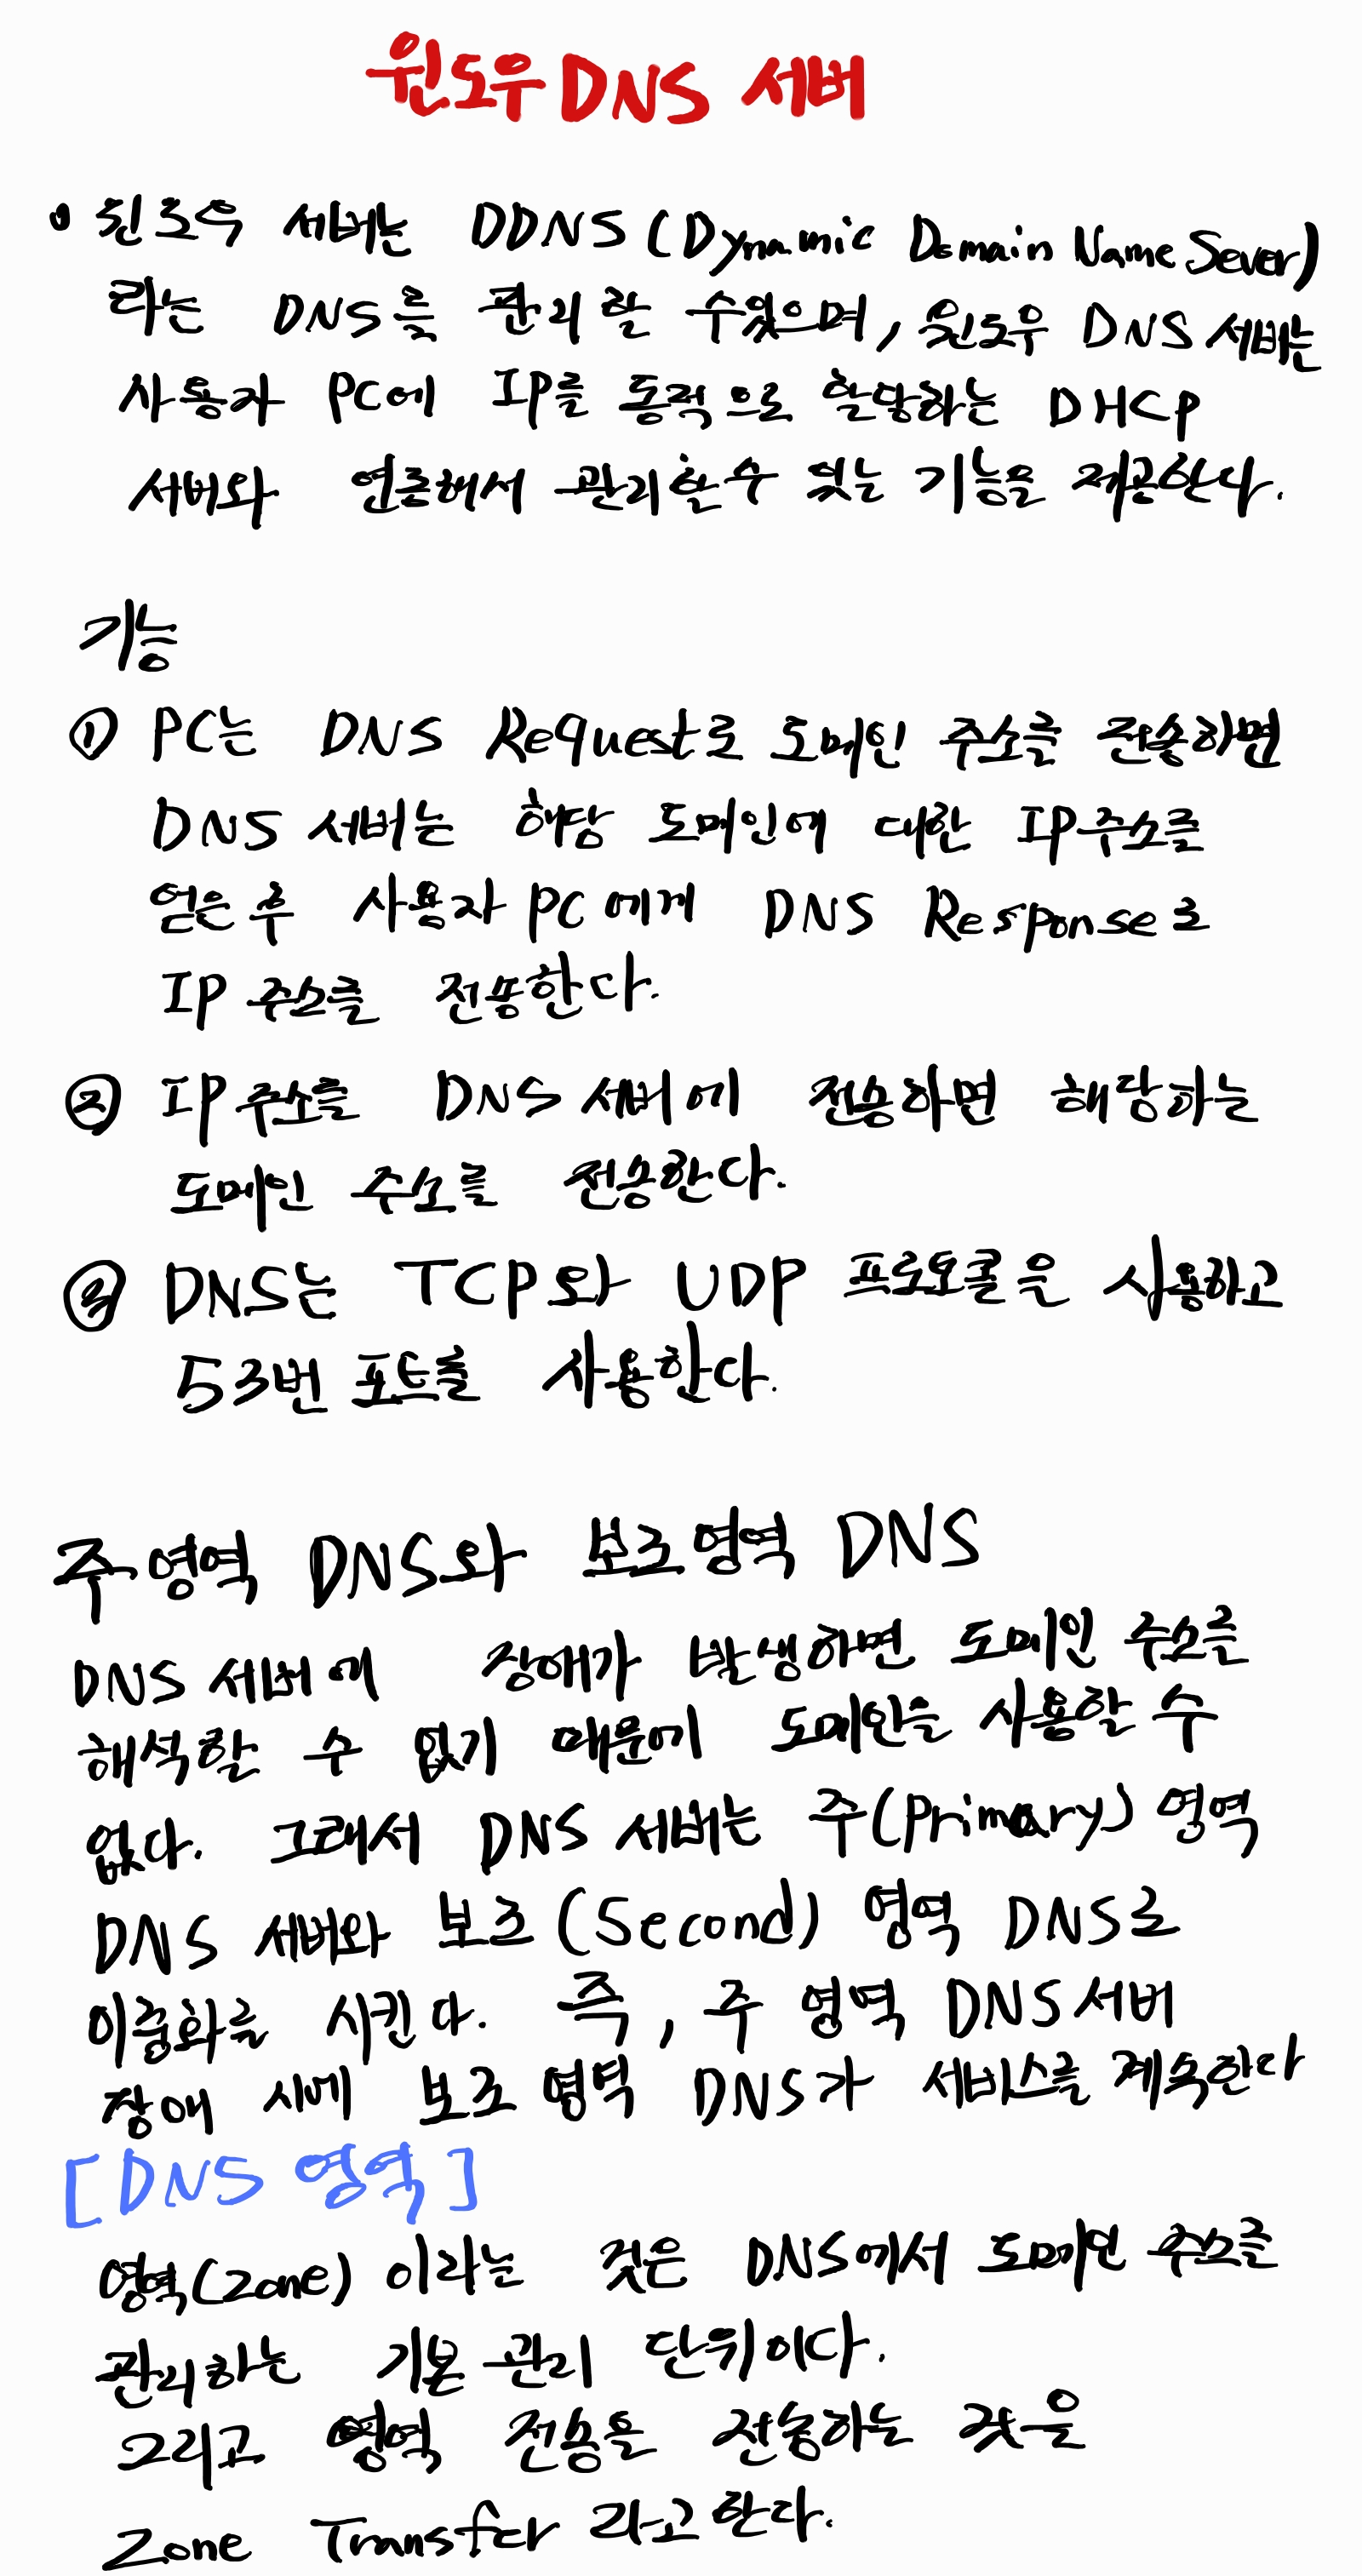 윈도우 DNS 서버
• 윈도우 서버는 DDNS (Dynamic Domain Name Sever)
라는 DNS를 관리할 수있으며, 윈도우 DNS 서버는
사용자 PC에 IP를 동적으로 할당하는 DHCP
서버와 연동해서 관리할수 있는 기능을 제공한다.
기능
① PC는 DNS Request로 도메인 주소를 전송하면
DNS 서버는 해당 도메인에 대한 IP주소를
얻은 후 사용자 PC에게 DNS Response로
IP 주소를 전송한다.
② IP주소를 DNS 서버에 전송하면 해당하는
도메인 주소를 전송한다.
③ DNS는 TCP와 UDP 프로토콜을 사용하고
53번 포트를 사용한다.
주영역 DNS와 보조영역 DNS
DNS 서버에 장애가 발생하면 도메인 주소를
해석할 수 없기 때문에 도메인을 사용할 수
없다. 그래서 DNS 서버는 주(Primary) 영역
DNS 서버와 보조(Second) 영역 DNS로
이중화를 시킨다. 즉, 주 영역 DNS 서버
장애 시에 보조 영역 DNS가 서비스를 계속한다
[DNS 영역]
영역(zone) 이라는 것은 DNS에서 도메인 주소를
관리하는 기본 관리 단위이다.
그리고 영역 전송을 전송하는 것을
Zone Transfer 라고 한다.